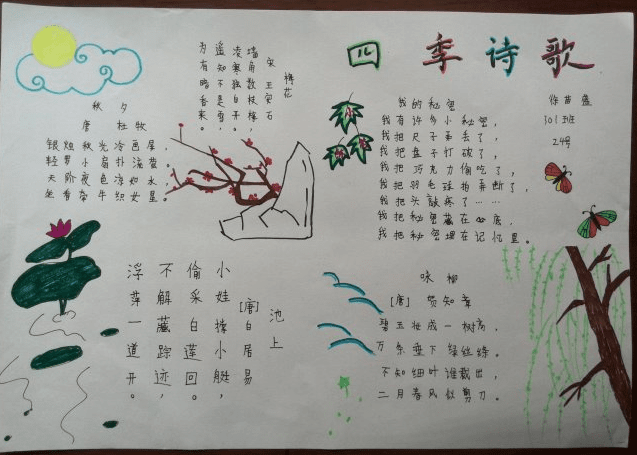 四季诗歌
徐苗盛
301班
24号
梅花
宋 王安石
墙角数枝梅，
凌寒独自开。
遥知不是雪，
为有暗香来。
秋夕
唐 杜牧
银烛秋光冷画屏，
轻罗小扇扑流萤。
天阶夜色凉如水，
坐看牵牛织女星。
我的秘密
我有许多小秘密，
我把尺子弄丢了，
我把盘子打破了，
我把巧克力偷吃了，
我把羽毛球拍弄断了，
我把头敲疼了……
我把秘密藏在心底，
我把秘密埋在记忆里。
池上
[唐]白居易
小娃撑小艇，
偷采白莲回。
不解藏踪迹，
浮萍一道开。
咏柳
[唐] 贺知章
碧玉妆成一树高，
万条垂下绿丝绦。
不知细叶谁裁出，
二月春风似剪刀。